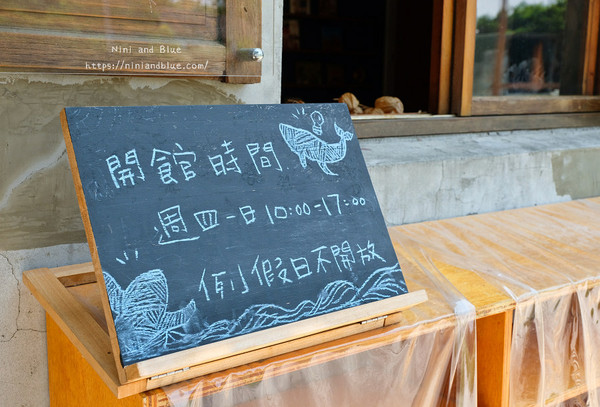 Nini and Blue
https://niniandblue.com/
開館時間
週四-日 10:00-17:00
例假日不開放